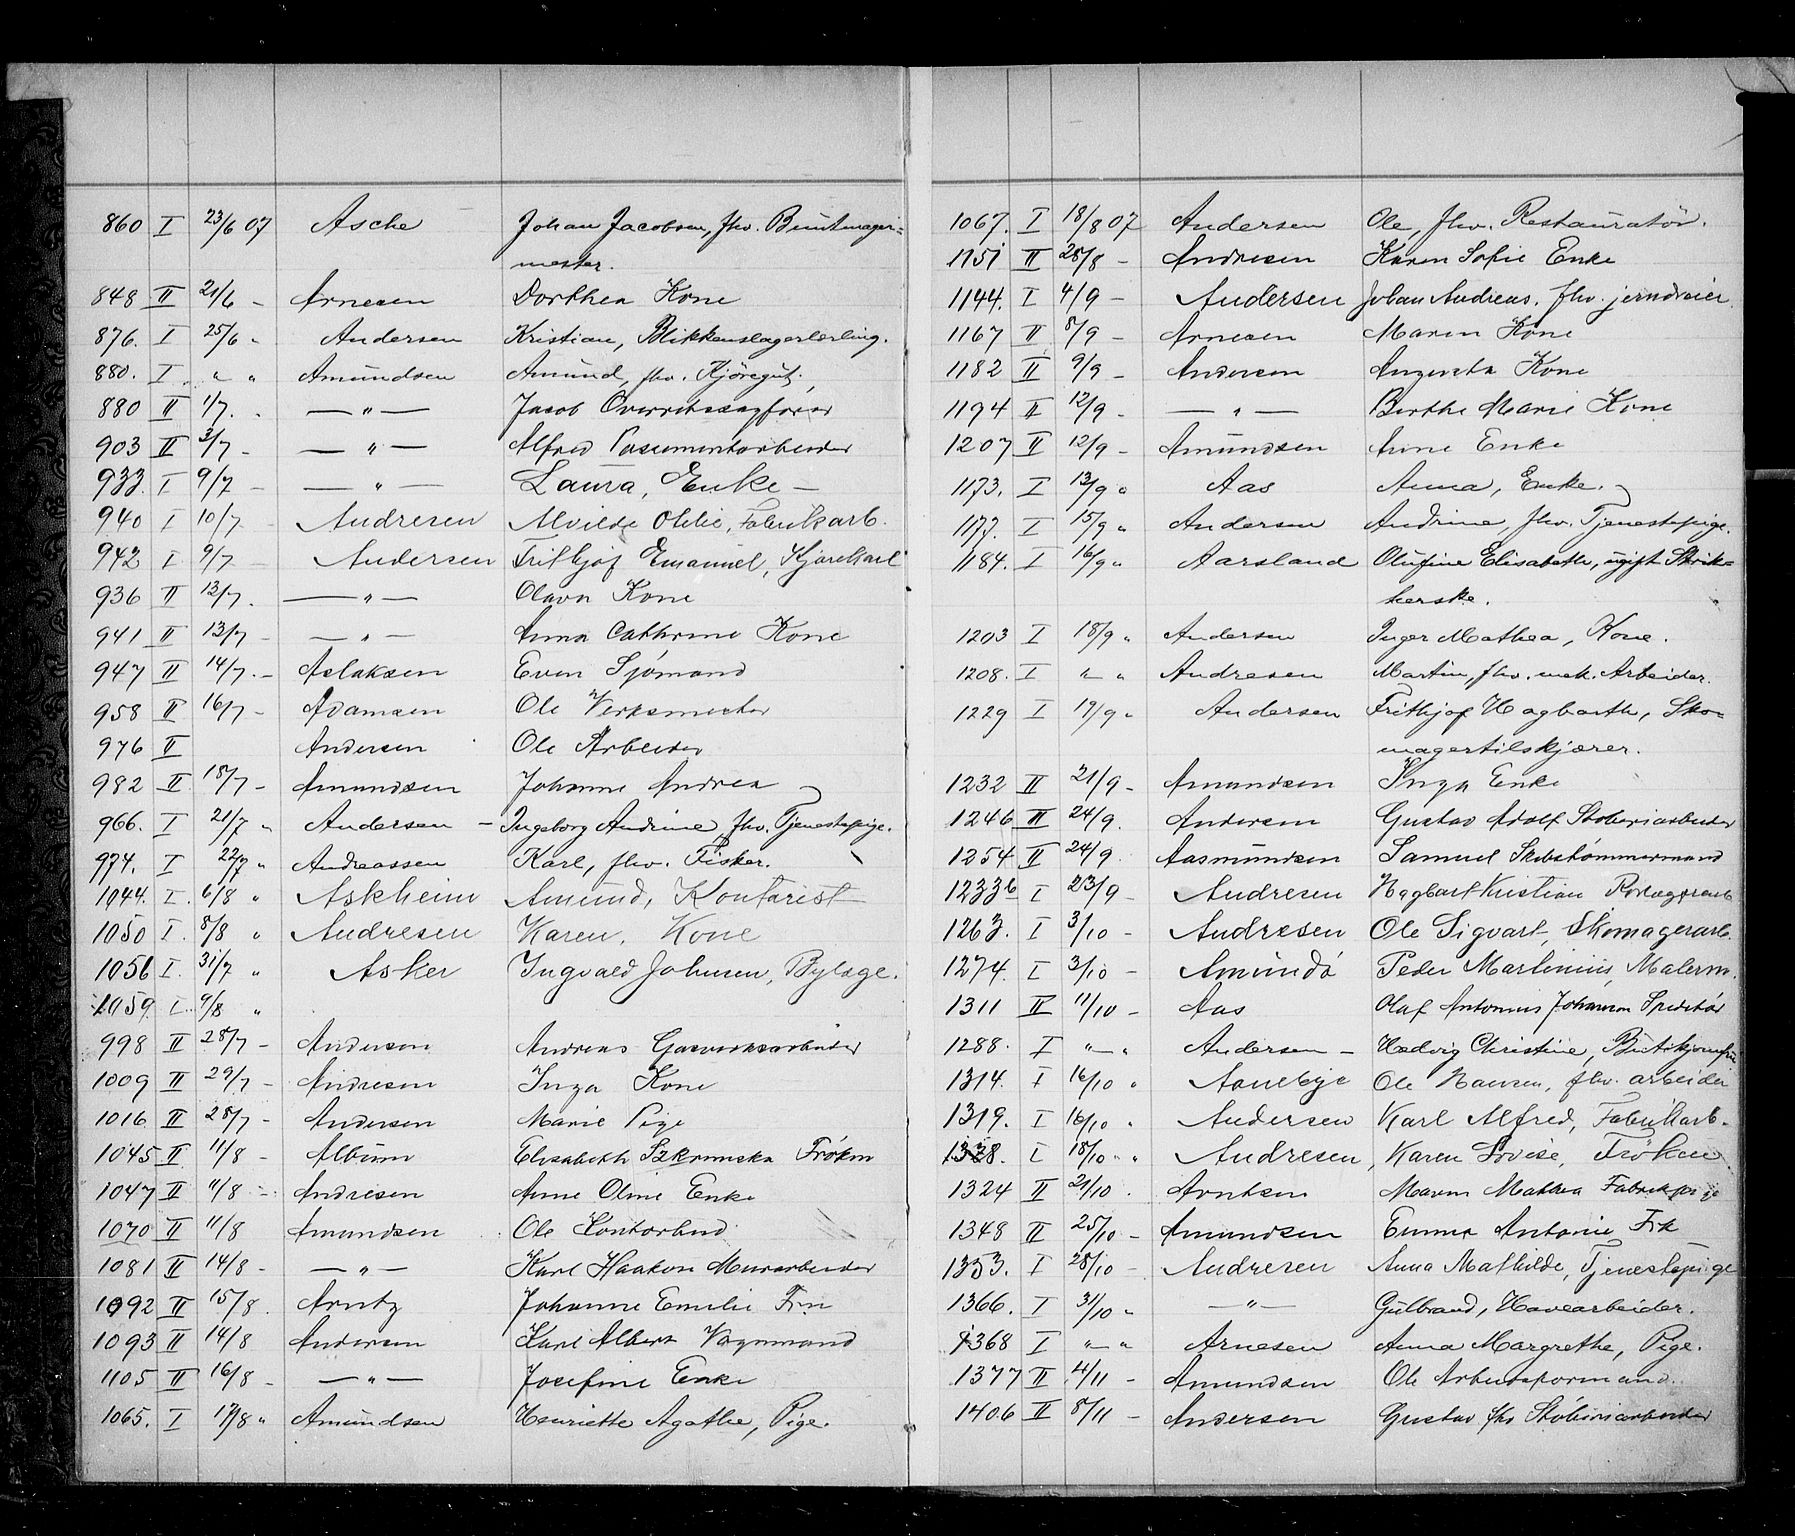 860 I 23/6 07 Asche Johan Jacobsen, fhv. Buntmager=
mester.
848 II 21/6 – Arnesen Dorthea Kone
876. I 25/6 " Andersen Kristian, Blikkenslagerlærling.
880. I " " Amundsen Amund, fhv. Kjöregut.
880 II 1/7. – — " — Jacob Overretssagförer
903 II 3/7 – — " — Alfred Possementarbeider
933. I 9/7 – — " — Laura, Enke –
940 I 10/7 – Andresen Alvilde Otilie, Fabrikarb.
942 I. 9/7 – Andersen Frithjof Emanuel, Kjørekarl
936 II 12/7. — " — Olava Kone
941 II 13/7 – — " — Anna Cathrine Kone
947 II 14/7. – Aslaksen Even Sjömand
958 II 16/7 – Adamsen Ole Verksmester
976 II Andersen Ole Arbeider
982 II 18/7 – Amundsen Johanne Andrea
966. I 21/7 " Andersen – Ingeborg Andrine, fhv. Tjenestepige.
974. I 22/7 " Andreassen Karl, fhv. Fisker.
1044. I. 6/8 " Askheim Amund, Kontorist
1050 I. 8/8 " Andresen Karen, Kone
1056 I. 31/7 " Asker Ingvald Johnsen, Bylæge.
1059. I. 9/8 "
998 II 28/7 – Andersen Andreas Gasverksarbeider
1009 II 29/7 – Andresen Inga Kone
1016 II 28/7 – Andersen Marie Pige
1045 II 11/8 – Album Elisabeth Frøken
1047 II 11/8 – Andresen Anne Oline Enke
1070 II 11/8 Amundsen Ole Kontorbud
1081 II 14/8 – — " — Karl Haakon Murarbeider
1092 II 15/8. Arntz Johanne Emilie Fru
1093 II 14/8 Andersen Karl Albert Vognmand
1105 II 16/8 – — " — Josefine Enke
1065. I 17/8 " Amundsen Henriette Agathe, Pige.
1067. I 18/8 07 Andersen Ole, fhv. Restauratör.
1151 II 28/8 – Andresen Karen Sofie Enke
1144. I 4/9 – Andersen Johan Andreas, fhv. jerndreier
1167 II 8/9 – Arnesen Maren Kone
1182 II 9/9 – Andersen Augusta Kone
1194 II 12/9 – — " — Berthe Marie Kone
1207 II 12/9 – Amundsen Anne Enke
1173. I 13/9 " Aas Anna, Enke.
1177. I 15/9 " Andersen Andrine, fhv. Tjenestepige.
1184. I 16/9 " Aarsland Olufine Elisabeth, ugift Strik=
kerske.
1203 I 18/9 " Andersen Inger Mathea, Kone.
1208. I " " Andresen Martin, fhv. mek. Arbeider.
1229 I 19/9 " Andersen Frithjof Hagbarth, Sko=
magertilskjærer.
1232 II 21/9 – Amundsen Inga Enke
1246 II 24/9. Andersen Gustav Adolf Støberiarbeider
1254 II 24/9. Aasmundsen Samuel Skibstømmermand
1233b I 23/9 – Andresen Hagbart Kristian
1263. I 3/10 – Andresen Ole Sigvart, Skomagerarb.
1274. I 3/10 – Amundö Peder Martinius, Malerm.
1311 II 11/10 – Aas Olaf Antonius Johansen Speditör
1288. I " " Andersen – Hedvig Christine, Butikjomfru
1314. I 16/10 " Aaneby Ole Hansen, fhv. arbeider
1319. I 16/10 " Andersen Karl Alfred, Fabrikarb.
1328. I 18/10 " Andresen, Karen Lovise, Frøken
1324 II 21/10. Arntsen Maren Mathea Fabrikpige
1348 II 25/10 – Amundsen Emma Antonie Frk
1353. I 28/10 – Andresen Anna Mathilde, Tjenestepige
1366. I 31/10 " — " — Gulbrand, Havearbeider.
1368 I " " Arnesen Anna Margrethe, Pige.
1377 II 4/11 – Amundsen Ole Arbeidsformand.
1406 II 8/11 – Andersen Gustav fhv Støberiarbeider